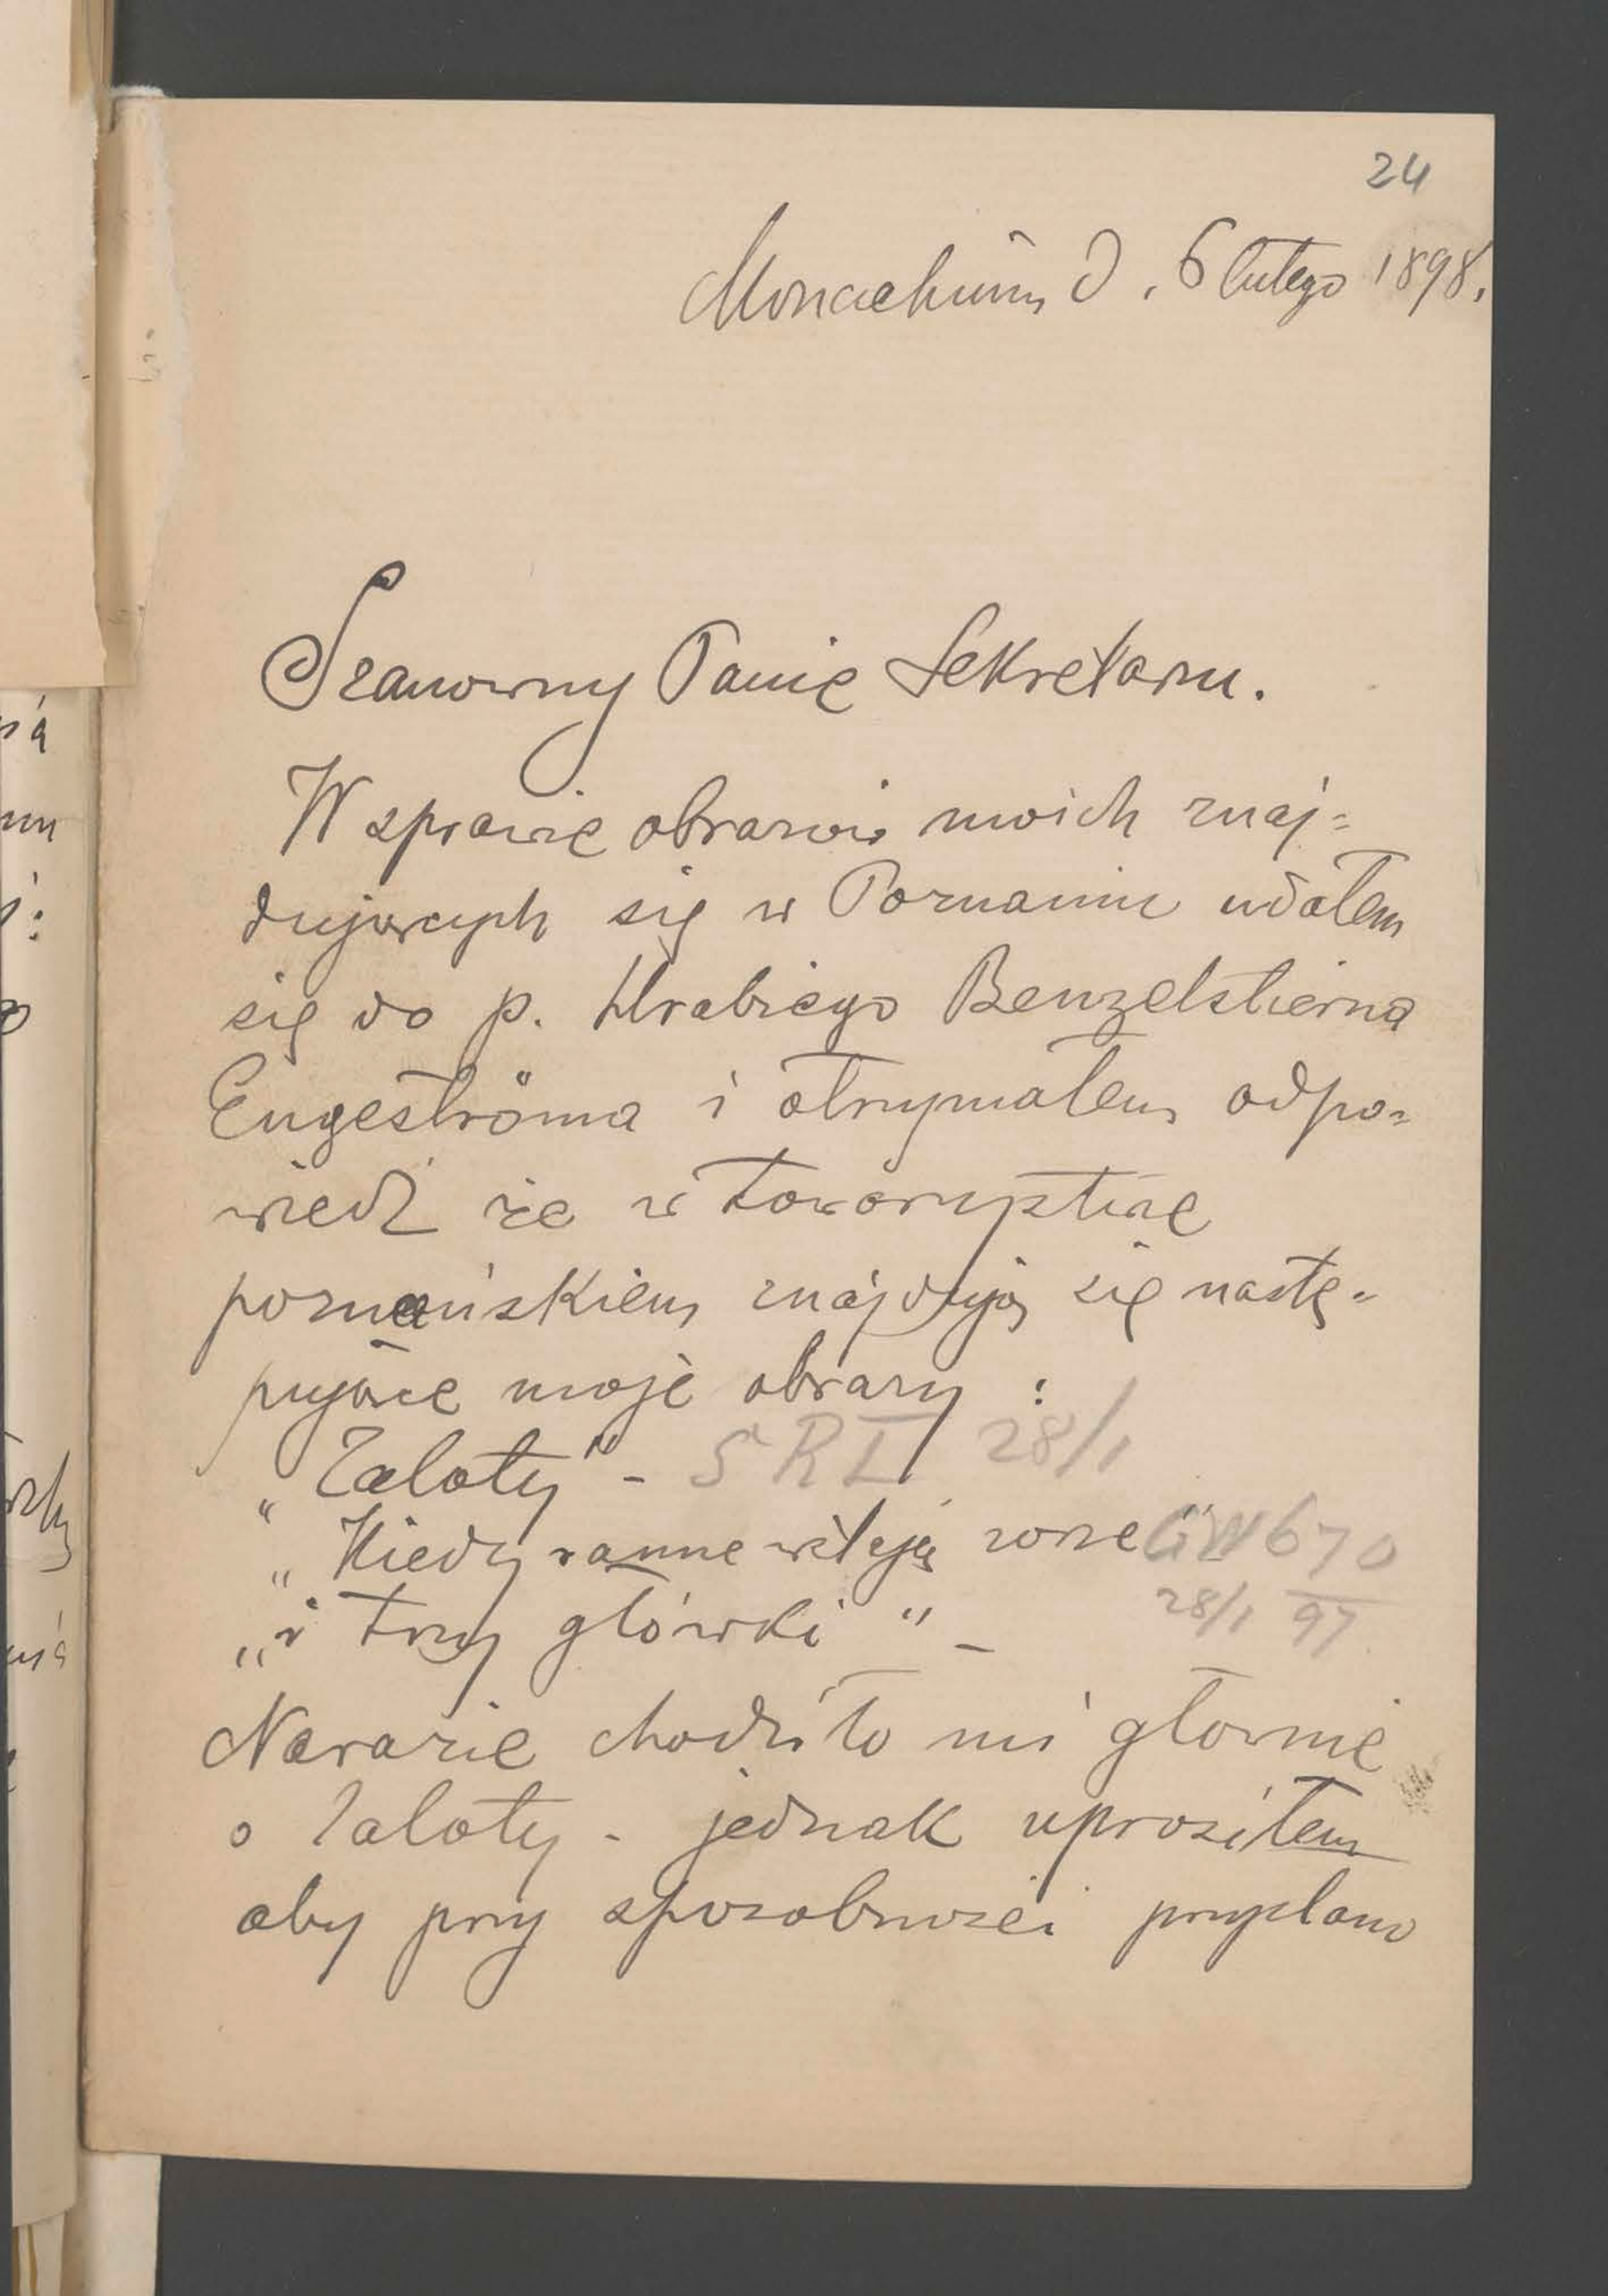 24
Monachium d. 6 lutego 1898.
Szanowny Panie Sekretarzu.
W sprawie obrazów moich znaj=
dujących się w Poznaniu udałem
się do p. Hrabiego Benzelstierna
Engeströma i otrzymałem odpo=
wiedź że w towarzystwie
poznańskiem znajdują się nastę=
pujące moje obrazy :
„Zaloty" - S R I 28/1
„Kiedy ranne wstają zorze" GW 670
„i trzy główki" - 28/1 97
Narazie chodziło mi głownie
o Zaloty - jednak uprosiłem
aby przy sposobności przysłano